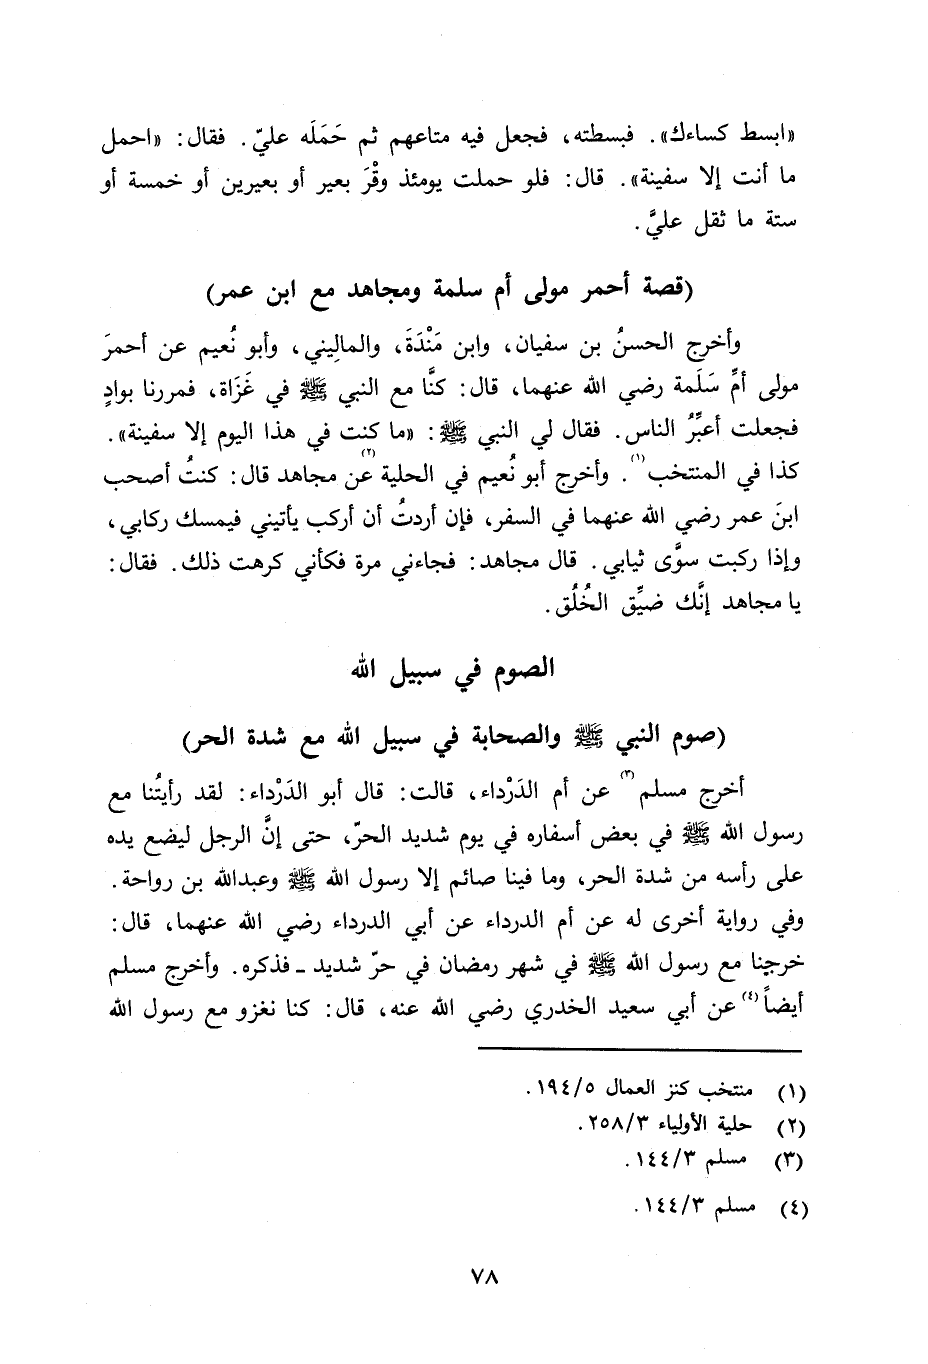 «ابسط كساءك». فبسطته، فجعل فيه متاعهم ثم حَمَلَه عليّ. فقال: «احمل
ما أنت إلا سفينة». قال: فلو حملت يومئذ وقْرَ بعير أو بعيرين أو خمسة أو
ستة ما ثقل عليَّ.
(قصة أحمر مولى أم سلمة ومجاهد مع ابن عمر)
وأخرج الحسنُ بن سفيان، وابن مَنْدَةَ، والمالِيني، وأبو نُعيم عن أحمرَ
مولى أمِّ سَلَمة رضي الله عنهما، قال: كنَّا مع النبي ﷺ في غَزَاة، فمررنا بوادٍ
فجعلت أعبِّرُ الناس. فقال لي النبي ﷺ: «ما كنت في هذا اليوم إلا سفينة».
كذا في المنتخب(١). وأخرج أبو نُعيم في الحلية(٢) عن مجاهد قال: كنتُ أصحب
ابنَ عمر رضي الله عنهما في السفر، فإن أردتُ أن أركب يأتيني فيمسك ركابي،
وإذا ركبت سوَّى ثيابي. قال مجاهد: فجاءني مرة فكأني كرهت ذلك. فقال:
يا مجاهد إنَّك ضيِّق الخُلُق.
الصوم في سبيل الله
(صوم النبي ﷺ والصحابة في سبيل الله مع شدة الحر)
أخرج مسلم(٣) عن أم الدَرْداء، قالت: قال أبو الدَرْداء: لقد رأيتُنا مع
رسول الله ﷺ في بعض أسفاره في يوم شديد الحرّ، حتى إنَّ الرجل ليضع يده
على رأسه من شدة الحر، وما فينا صائم إلا رسول الله ﷺ وعبدالله بن رواحة.
وفي رواية أخرى له عن أم الدرداء عن أبي الدرداء رضي الله عنهما، قال:
خرجنا مع رسول الله ﷺ في شهر رمضان في حرّ شديد ـ فذكره. وأخرج مسلم
أيضاً(٤) عن أبي سعيد الخدري رضي الله عنه، قال: كنا نغزو مع رسول الله
(١) منتخب كنز العمال ١٩٤/٥.
(٢) حلية الأولياء ٢٥٨/٣.
(٣) مسلم ١٤٤/٣.
(٤) مسلم ١٤٤/٣.
٧٨